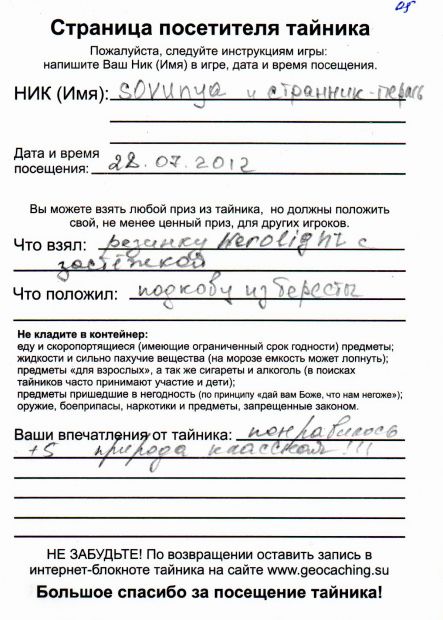 Страница посетителя тайника
Пожалуйста, следуйте инструкциям игры:
напишите Ваш Ник (Имя) в игре, дата и время посещения.
НИК (Имя): SOVUnya и странник-пермь
Дата и время
посещения: 22.07.2012
Вы можете взять любой приз из тайника, но должны положить
свой, не менее ценный приз, для других игроков.
Что взял: резинку с
застёжкой
Что положил: подкову из бересты
Не кладите в контейнер:
еду и скоропортящиеся (имеющие ограниченный срок годности) предметы;
жидкости и сильно пахучие вещества (на морозе емкость может лопнуть);
предметы «для взрослых», а так же сигареты и алкоголь (в поисках
тайников часто принимают участие и дети);
предметы пришедшие в негодность (по принципу «дай вам Боже, что нам негоже»);
оружие, боеприпасы, наркотики и предметы, запрещенные законом.
Ваши впечатления от тайника: понравилось
+5 природа классная!!!
НЕ ЗАБУДЬТЕ! По возвращении оставить запись в
интернет-блокноте тайника на сайте www.geocaching.su
Большое спасибо за посещение тайника!